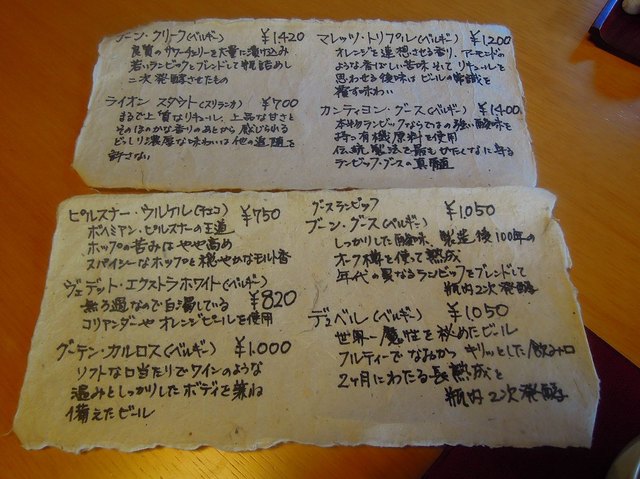 ブーン・クリーク(ベルギー) ¥1420
良質のサワーチェリーを大量に漬け込み
若いランビックとブレンドして瓶詰めし
二次発酵させたもの
ライオン スタウト(スリランカ) ¥700
まるで上質なリキュール、上品な甘さと
そのほのかな香りのあとから感じられる
どっしり濃厚な味わいは他の追随を
許さない
マレッツ・トリプル(ベルギー) ¥1200
オレンジを連想させる香り、アーモンドの
ような香ばしい苦味そしてリキュールを
思わせる後味はビールの常識を
覆す味わい
カンティヨン・グース(ベルギー) ¥1400
本物ランビックならではの強い酸味を
持つ有機原料を使用
伝統製法を最もかたくなに守る
ランビック・グースの真髄
ピルスナー・ウルケル(チェコ) ¥750
ボヘミアン・ピルスナーの王道
ホップの苦みはやや高め
スパイシーなホップと穏やかなモルト香
ヴェデット・エクストラホワイト(ベルギー)
無ろ過なので白濁している ¥820
コリアンダーやオレンジピールを使用
グーテン・カルロス(ベルギー) ¥1000
ソフトな口当たりでワインのような
温みとしっかりしたボディを兼ね
備えたビール
グースランビック
ブーン・グース(ベルギー) ¥1050
しっかりした酸味、製造後100年の
オーク樽を使って熟成
年代の異なるランビックをブレンドして
瓶内2次発酵
デュベル(ベルギー) ¥1050
世界一魔性を秘めたビール
フルティーでなめらか キリッとした飲み口
2ヶ月にわたる長熟成と
瓶内2次発酵